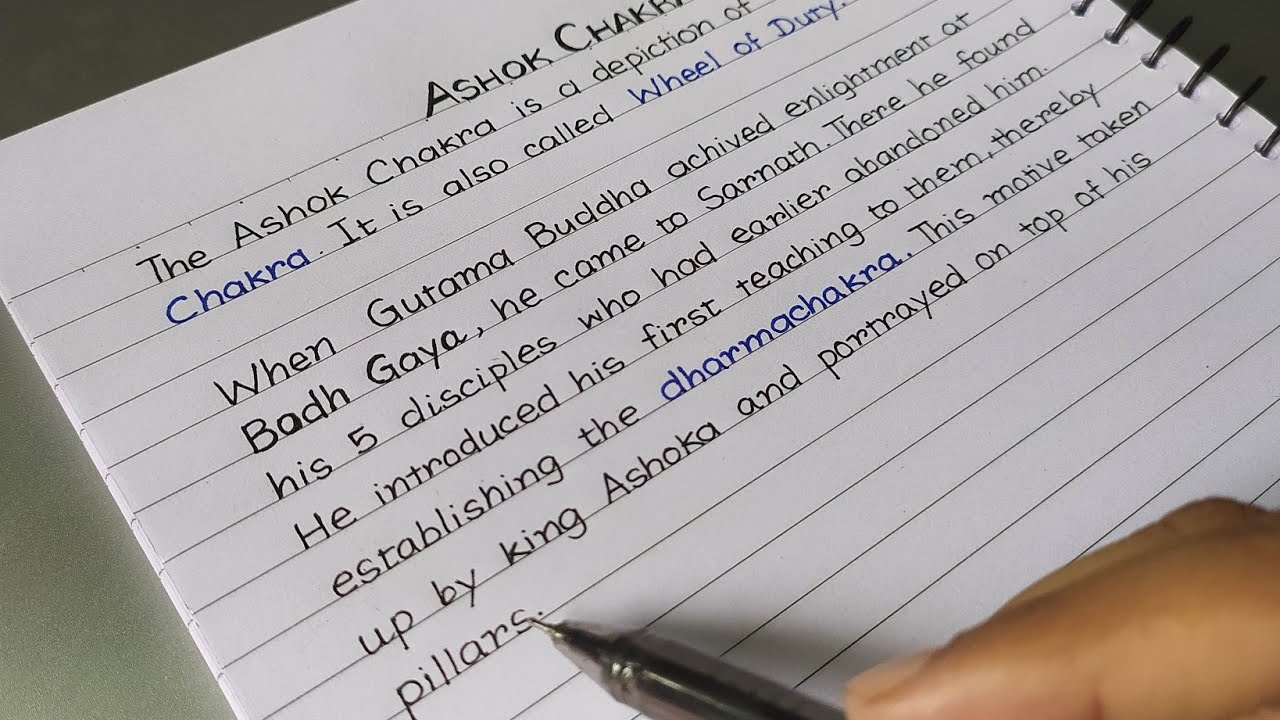 ASHOK CHAKRA
The Ashok Chakra is a depiction of
Chakra. It is also called Wheel of Duty.
When Gutama Buddha achived enlightment at
Badh Gaya, he came to Sarnath. There he found
his 5 disciples who had earlier abandoned him.
He introduced his first teaching to them, thereby
establishing the dharmachakra. This motive taken
up by king Ashoka and portrayed on top of his
pillars.